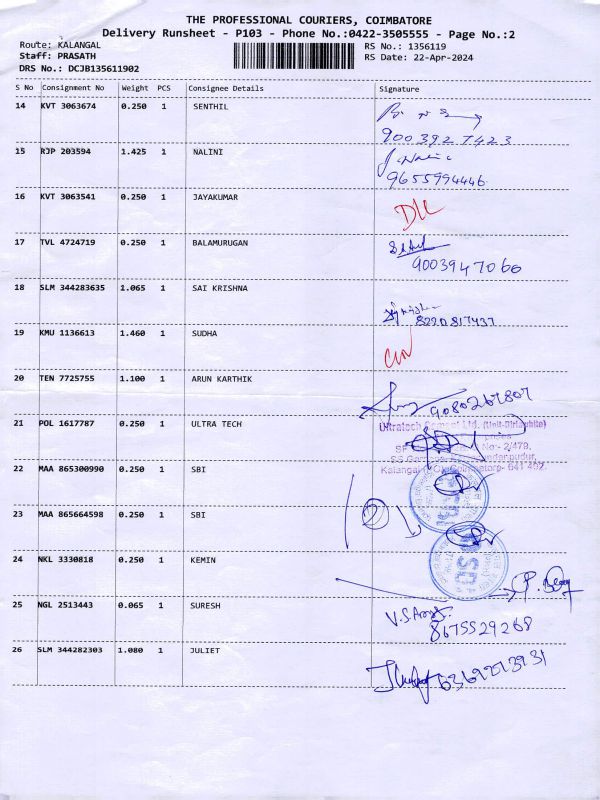 THE PROFESSIONAL COURIERS, COIMBATORE
Delivery Runsheet - P103 - Phone No.:0422-3505555 - Page No.:2
Route: KALANGAL
RS No.: 1356119
Staff: PRASATH
RS Date: 22-Apr-2024
DRS No.: DCJB135611902
S No Consignment No Weight PCS Consignee Details Signature
14 KVT 3063674 0.250 1 SENTHIL
9003927423
15 RJP 203594 1.425 1 NALINI
9655994446
16 KVT 3063541 0.250 1 JAYAKUMAR
17 TVL 4724719 0.250 1 BALAMURUGAN
9003947060
18 SLM 344283635 1.065 1 SAI KRISHNA
8220817437
19 KMU 1136613 1.460 1 SUDHA
20 TEN 7725755 1.100 1 ARUN KARTHIK
9080267807
21 POL 1617787 0.250 1 ULTRA TECH
Ultratech Cement Ltd.
No:- 2/479,
22 MAA 865300990 0.250 1 SBI
23 MAA 865664598 0.250 1 SBI
24 NKL 3330818 0.250 1 KEMIN
25 NGL 2513443 0.065 1 SURESH
8675529268
26 SLM 344282303 1.080 1 JULIET